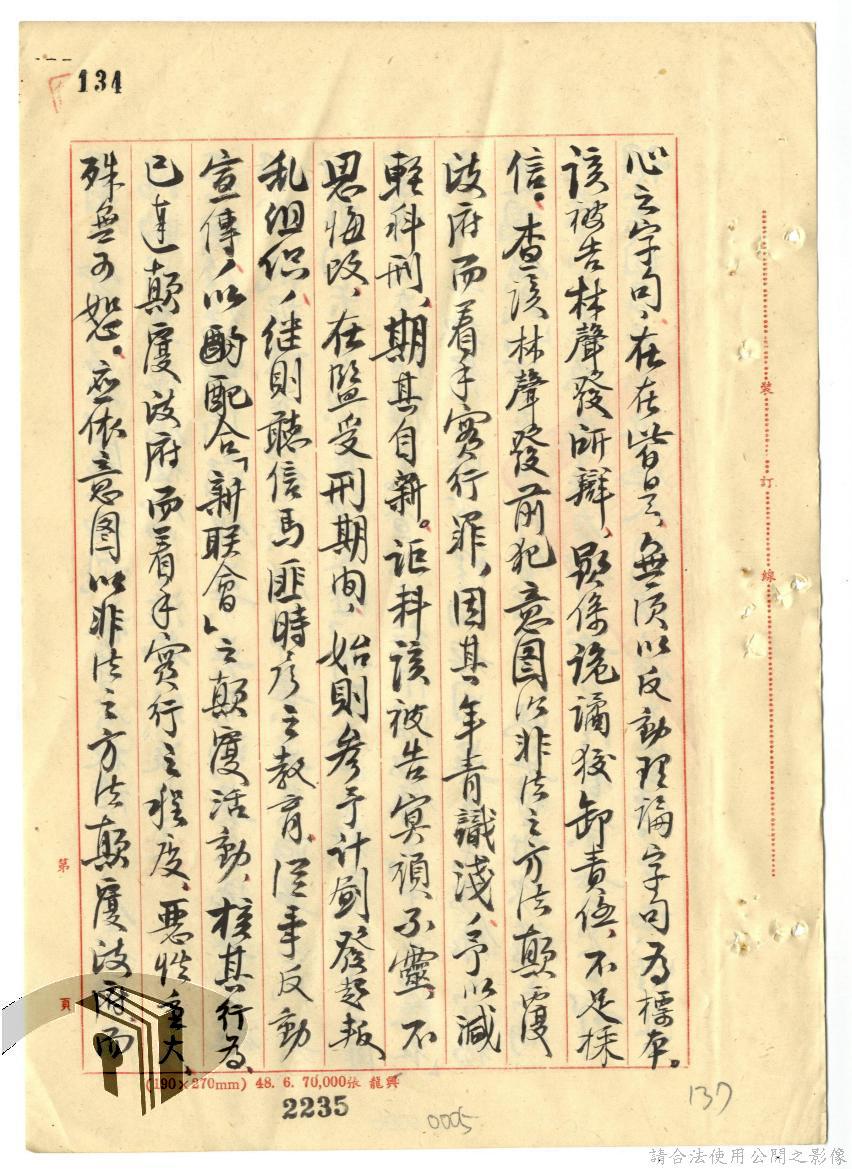 134
心之字句,在在皆是,無須以反動理論字句為標本。
該被告林聲發所辯,顯係詭譎狡卸責任,不足採
信。查該林聲發前犯意图以非法之方法顛覆
政府而着手實行罪,因其年青識淺,予以減
輕科刑,期其自新。詎料該被告冥頑不靈,不
思悔改,在監受刑期间,始則參予計劃發起叛
乱组织,继則聽信馬匪時彥之教育,從事反動
宣傳,以酌配合「新联會」之顛覆活動,核其行為,
已達顛覆政府而着手實行之程度,惡性重大,
殊無可恕。應依意图以非法之方法顛覆政府而
裝訂線
第 頁
(190×270mm) 48. 6. 70,000張 龍興
2235
0005
137
請合法使用公開之影像